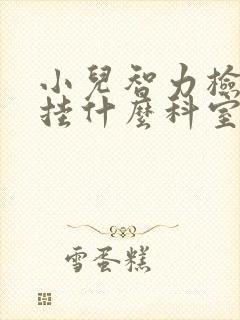 小兒智力檢
挂什麼科室
雪蛋糕